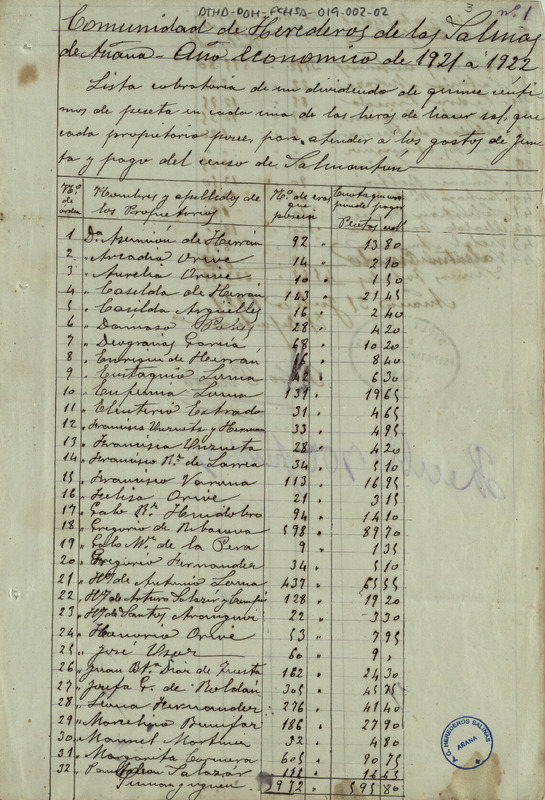 DTHD-DOH-FCHSA-019-002-02
3
nº 1
Comunidad de Herederos de las Salinas
de Añana - Año económico de 1921 a 1922
Lista cobratoria de un dividendo de quince cénti-
mos de peseta en cada una de las heras de hacer sal, que
cada propietario posee, para atender á los gastos de Jun-
ta y pago del censo de
Nº de orden Nombres y apellidos de los Propietarios Nº de eras que poseen Cuota que corresponde pagar
Pesetas cent
1 Dª Asunción de Herrán 92 " 13 80
2 " Arcadia Orive 14 " 2 10
3 " Aurelia Orive 10 " 1 50
4 " Casilda de Herrán 143 " 21 45
5 " Casilda Argüelles 16 " 2 40
6 " Damaso 28 " 4 20
7 " Deogracias García 68 " 10 20
8 " Enrique de Herrán 8 40
9 " Eustaquio Luna 42 " 6 30
10 " Eufemia Luna 131 " 19 65
11 " Eleuterio Extrado 31 " 4 65
12 " Francisca Unzueta y Herman 33 " 4 95
13 " Francisca Unzueta 28 " 4 20
14 " Francisco Rz. de Larrea 34 " 5 10
15 " Francisco Varona 113 " 16 95
16 " Felisa Orive 21 " 3 15
17 " Galo Rz. Huidobro 94 " 14 10
18 " Gregorio de Ribacova 598 " 89 70
19 " Galo Mz. de la Pera 9 " 1 35
20 " Gregorio Fernandez 34 " 5 10
21 " Hº de Antonio Luna 437 " 65 55
22 " Hº de Arturo Salazár y 128 " 19 20
23 " Hº de Santos Aranguiz 22 " 3 30
24 " Honorio Orive 53 " 7 95
25 " José 60 " 9 "
26 " Juan Btª Diaz de 162 " 24 30
27 " Josefa G. de Roldán 305 " 45 75
28 " Luisa Fernandez 276 " 41 40
29 " Marcelino 186 " 27 90
30 " Manuel Martinez 32 " 4 80
31 " Margarita 605 " 90 75
32 " Salazar 111 " 16 65
Suma y sigue 3972 " 595 80
A.C. HEREDEROS SALINAS
AÑANA